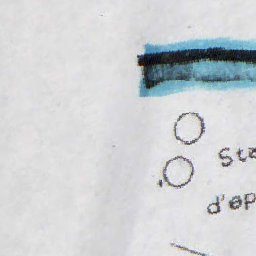 Sta
d'op